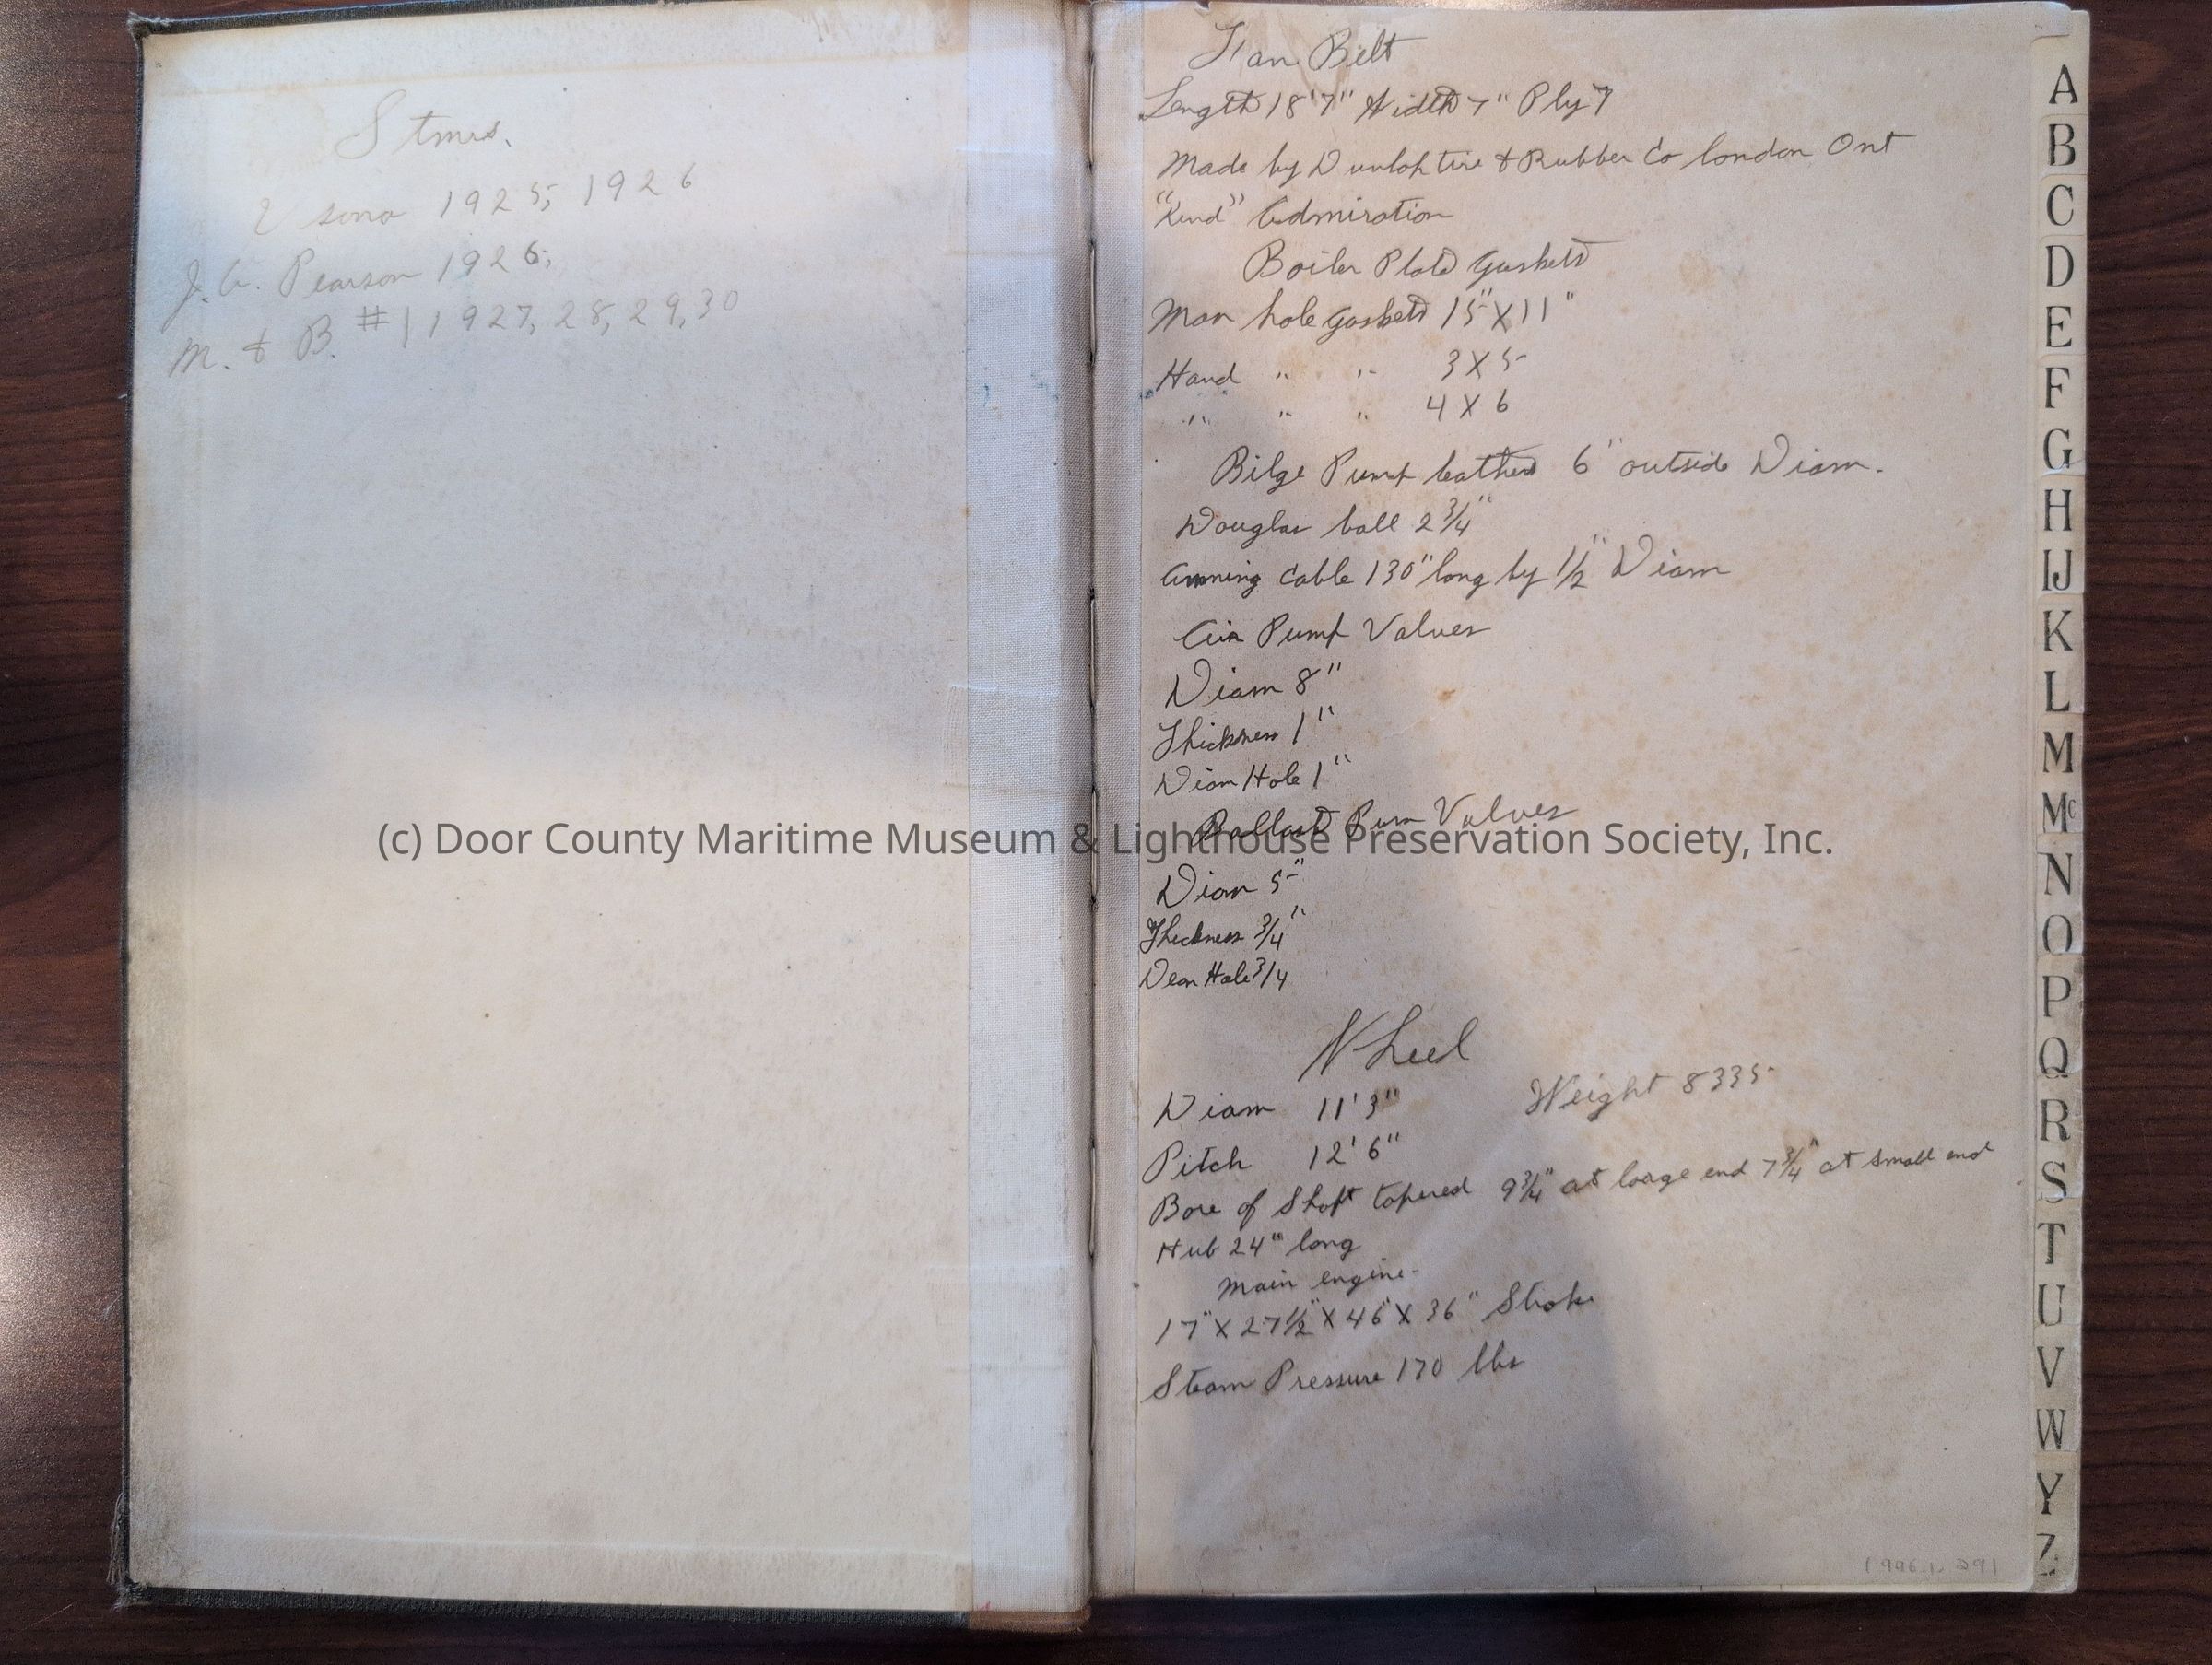 Stmrs.
Usona 1925, 1926
J. A. Pearson 1926,
M. & B. #1 1927, 28, 29, 30
Fan Belt
Length 18'7" Width 7" Ply 7
Made by Dunlop tire & Rubber Co london Ont
"Kind" Admiration
Boiler Plate Gaskets
Man hole Gaskets 15" X 11"
Hand " " 3 X 5
" " " 4 X 6
Bilge Pump leathers 6" outside Diam.
Douglas ball 2 3/4"
Awning Cable 130" long by 1/2" Diam
Air Pump Valves
Diam 8"
Thickness 1"
Diam Hole 1"
Ballast Pum Valves
Diam 5"
Thickness 3/4"
Diam Hole 3/4
Wheel
Diam 11'3" Weight 8335
Pitch 12'6"
Bore of Shaft tapered 9 3/4" at large end 7 3/4" at small end
Hub 24" long
Main engine.
17" X 27 1/2" X 46" X 36" Stroke
Steam Pressure 170 lbs
A
B
C
D
E
F
G
H
IJ
K
L
M
Mc
N
O
P
Q
R
S
T
U
V
W
Y
Z
(c) Door County Maritime Museum & Lighthouse Preservation Society, Inc.